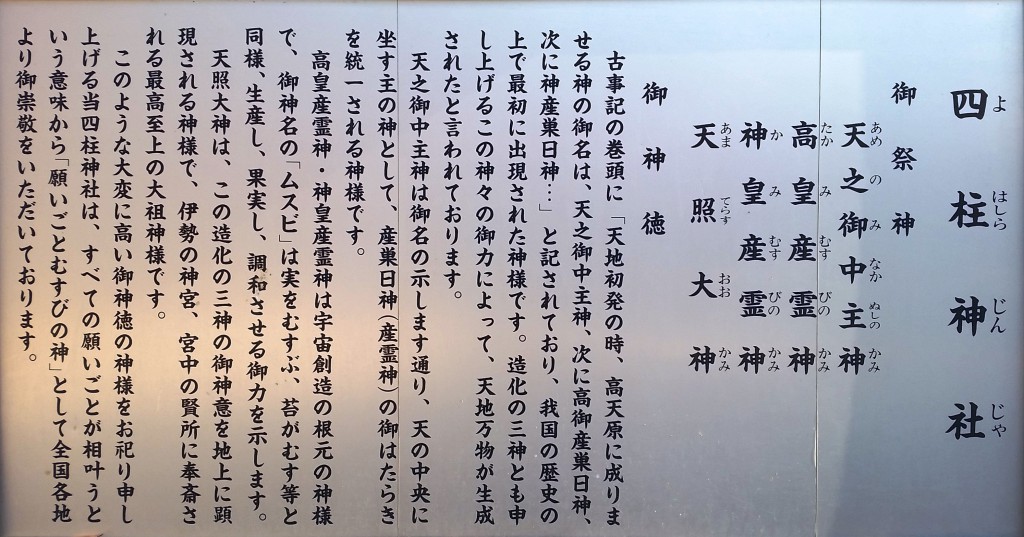 四柱神社
よ はしら じん じゃ
御祭神
天之御中主神
あめ の み なか ぬしの かみ
高皇産霊神
たか み むす びの かみ
神皇産霊神
か み むす びの かみ
天照大神
あま てらす おお かみ
御神徳
古事記の巻頭に「天地初発の時、高天原に成りま
せる神の御名は、天之御中主神、次に高御産巣日神、
次に神産巣日神…」と記されており、我国の歴史の
上で最初に出現された神様です。造化の三神とも申
し上げるこの神々の御力によって、天地万物が生成
されたと言われております。
天之御中主神は御名の示します通り、天の中央に
坐す主の神として、産巣日神(産霊神)の御はたらき
を統一される神様です。
高皇産霊神・神皇産霊神は宇宙創造の根元の神様
で、御神名の「ムスビ」は実をむすぶ、苔がむす等と
同様、生産し、果実し、調和させる御力を示します。
天照大神は、この造化の三神の御神意を地上に顕
現される神様で、伊勢の神宮、宮中の賢所に奉斎さ
れる最高至上の大祖神様です。
このような大変に高い御神徳の神様をお祀り申し
上げる当四柱神社は、すべての願いごとが相叶うと
いう意味から「願いごとむすびの神」として全国各地
より御崇敬をいただいております。